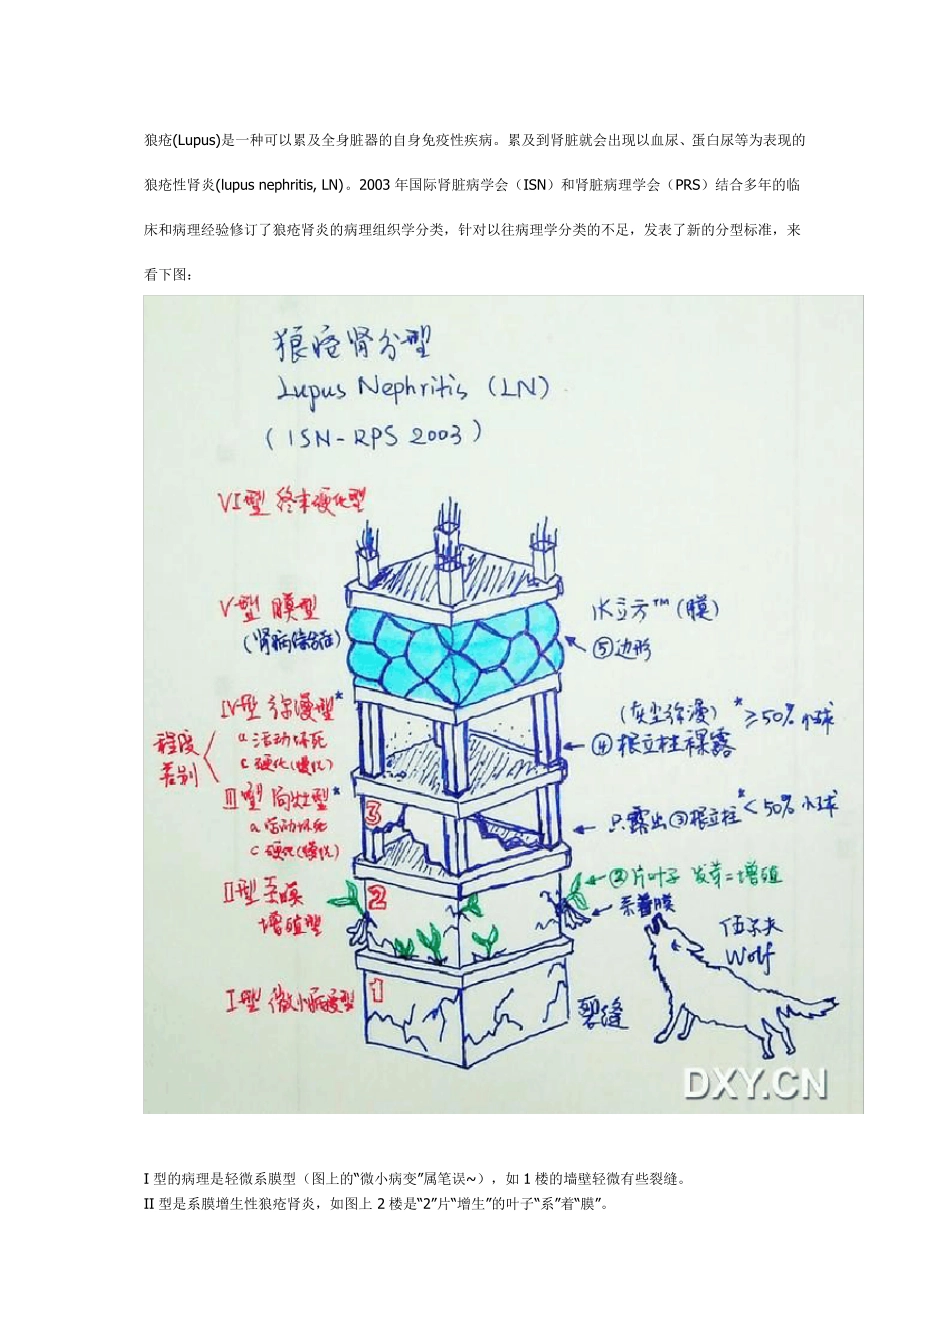 狼疮(Lupus)是一种可以累及全身脏器的自身免疫性疾病。累及到肾脏就会出现以血尿、蛋白尿等为表现的
狼疮性肾炎(lupus nephritis, LN)。2003 年国际肾脏病学会（ISN）和肾脏病理学会（PRS）结合多年的临
床和病理经验修订了狼疮肾炎的病理组织学分类，针对以往病理学分类的不足，发表了新的分型标准，来
看下图：
狼疮肾分型
Lupus Nephritis (LN)
(ISN-RPS 2003)
VI型 终末硬化型
V型 膜型
(肾病综合征)
水立方™(膜)
⑤边形
IV型 弥漫型*
a 活动坏死
c 硬化(慢性)
(灰尘弥漫) *≥50%小球
④根立柱裸露
程度
差别
III型 局灶型*
a 活动坏死
c 硬化(慢性)
3
只露出③根立柱 *<50%小球
II型 系膜
增殖型
2
②片叶子 发芽=增殖
系着膜
伍尔夫
Wolf
I型 微小病变型
1
裂缝
DXY.CN
I 型的病理是轻微系膜型（图上的“微小病变”属笔误~），如 1 楼的墙壁轻微有些裂缝。
II 型是系膜增生性狼疮肾炎，如图上 2 楼是“2”片“增生”的叶子“系”着“膜”。